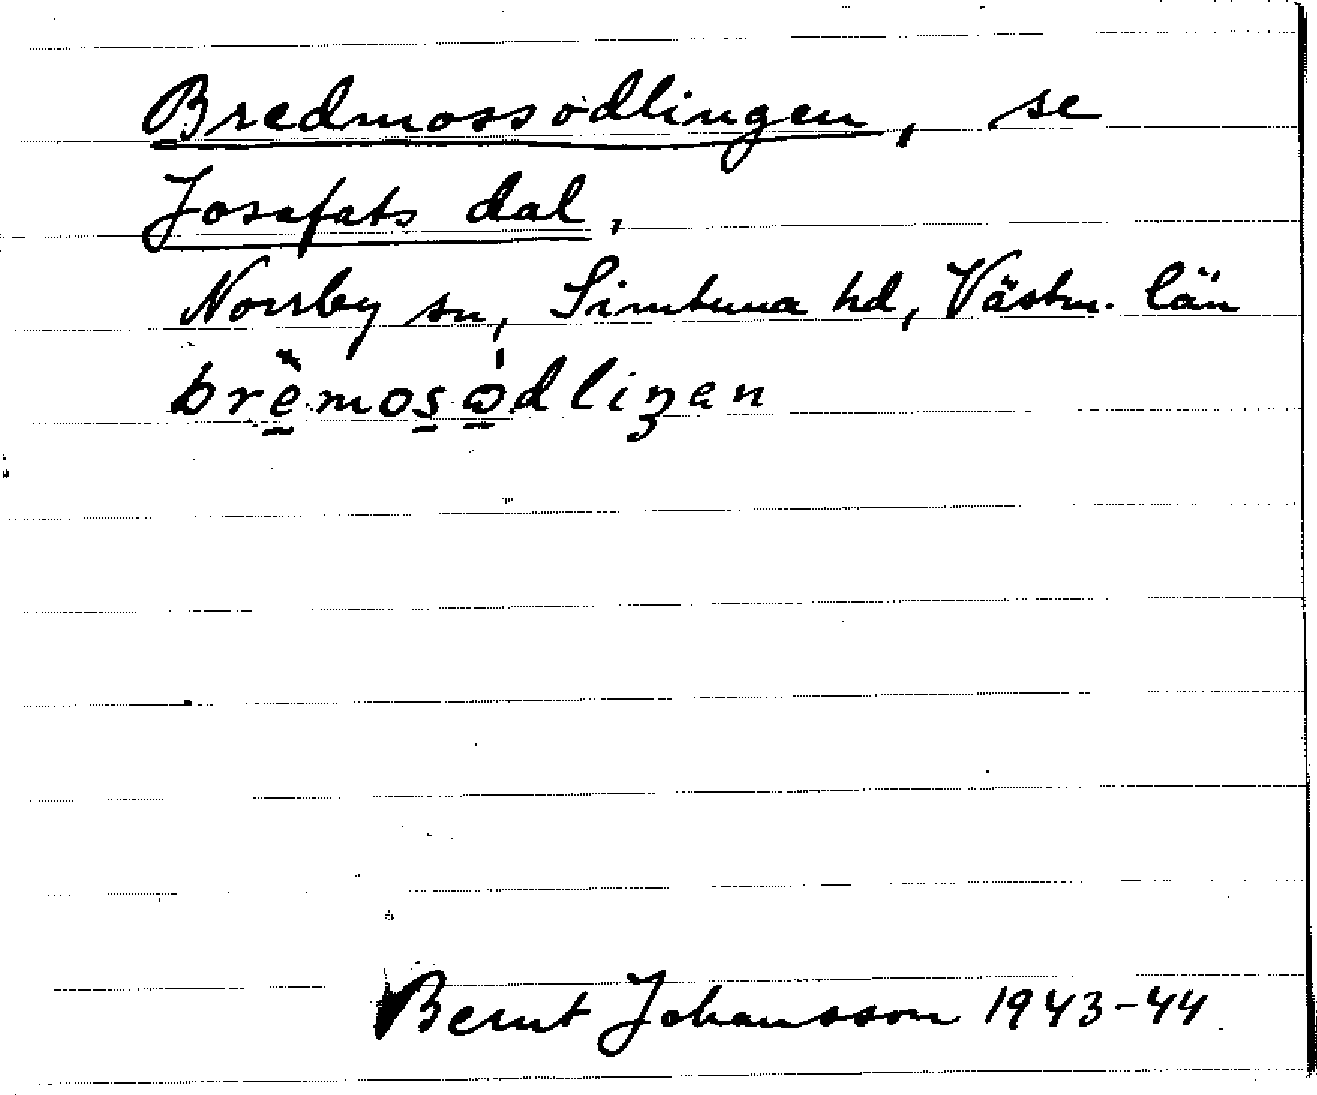 Bredmossodlingen, se
Josafats dal,
Norrby sn, Simtuna hd, Västm. län
brèmosòdliŋen
Bernt Johansson 1943-44